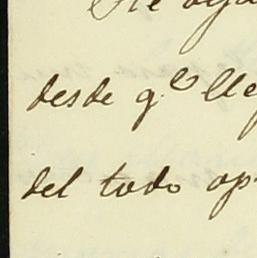 desde qe lle
del todo op